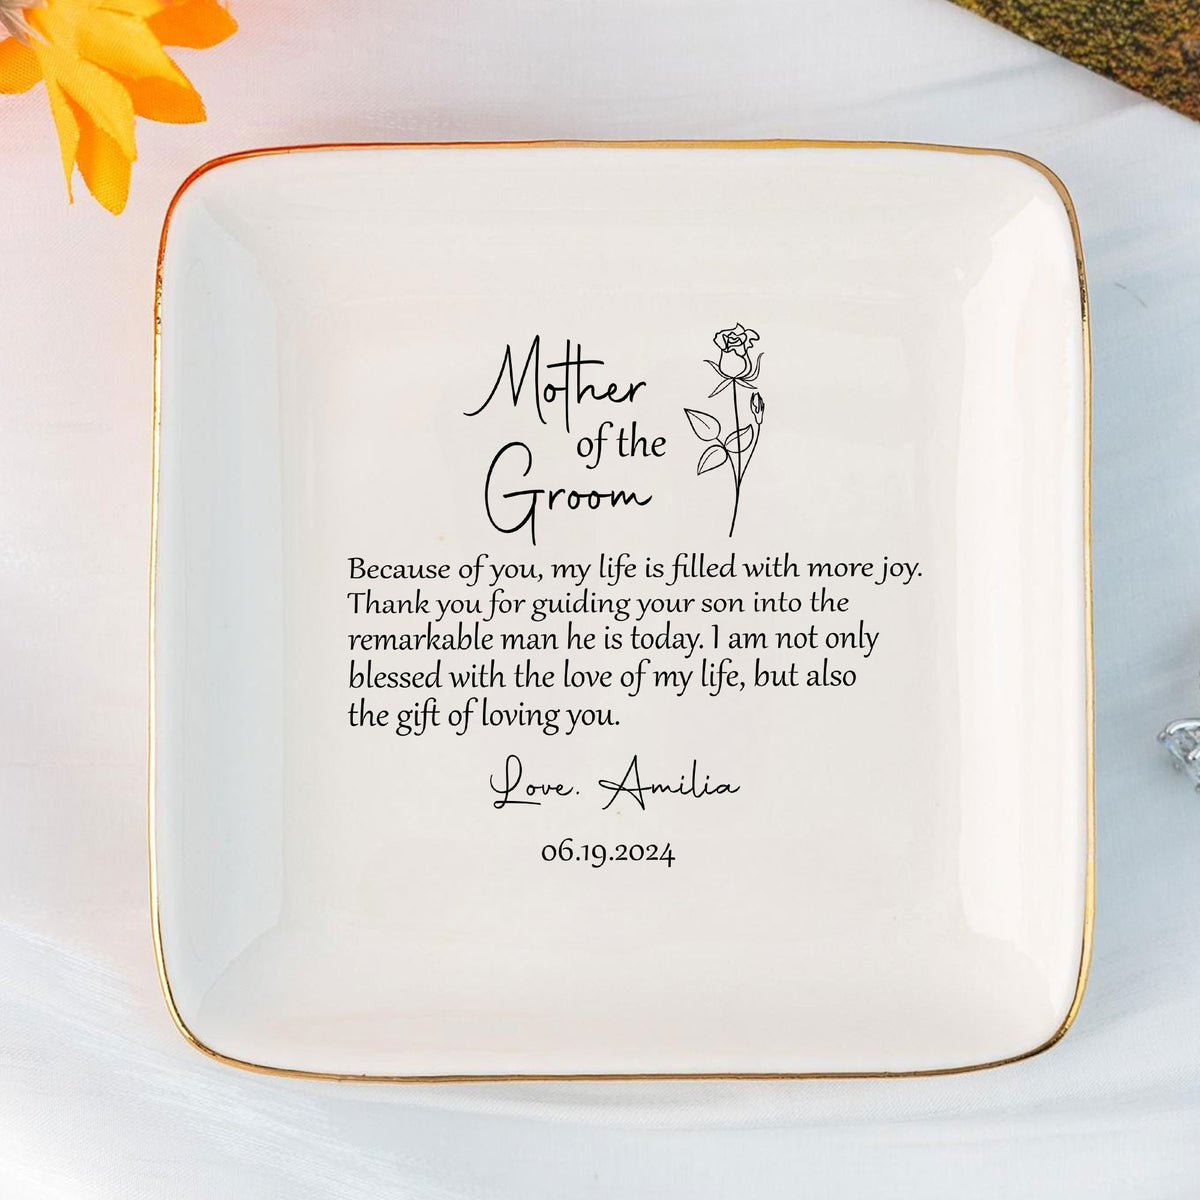 Mother
of the
Groom
Because of you, my life is filled with more joy.
Thank you for guiding your son into the
remarkable man he is today. I am not only
blessed with the love of my life, but also
the gift of loving you.
Love. Amilia
06.19.2024